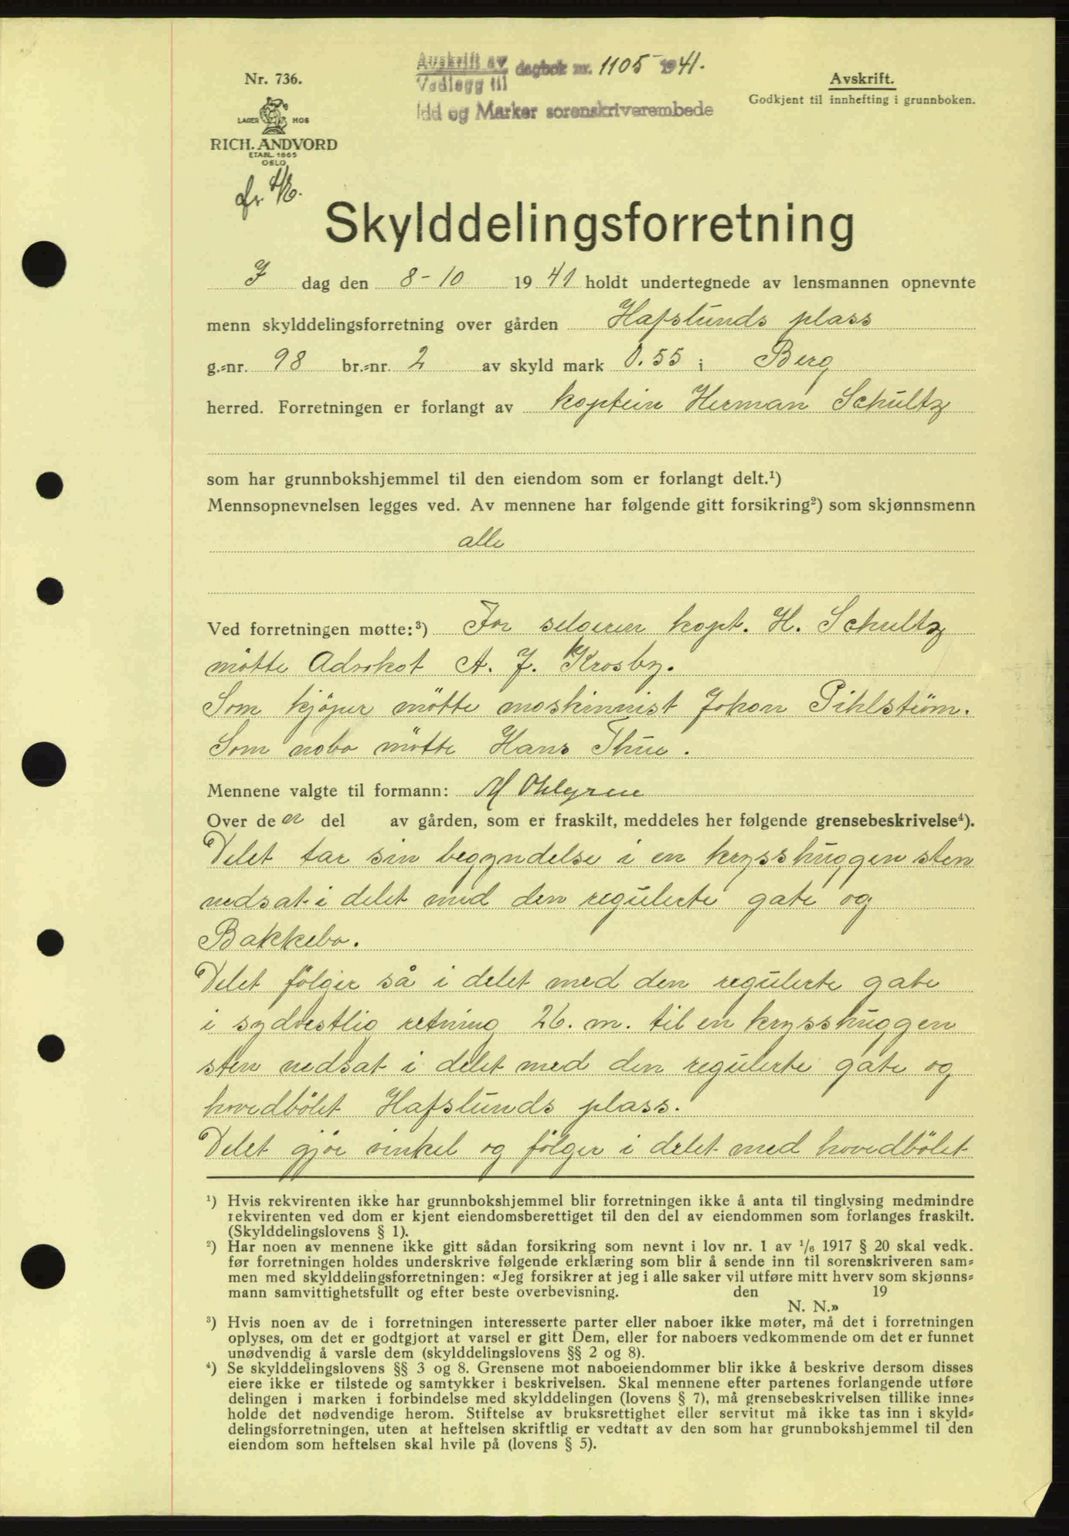 Avskrift av
Vedlegg til dagbok nr. 1105 1941.
Idd og Marker sorenskriverembede
Avskrift.
Godkjent til innhefting i grunnboken.
Nr. 736.
LAGER HOS
RICH. ANDVORD
ETABL. 1865
OSLO
Skylddelingsforretning
I dag den 8-10 1941 holdt undertegnede av lensmannen opnevnte
menn skylddelingsforretning over gården Hafslunds plass
g.-nr. 98 br.-nr. 2 av skyld mark 0.55 i Berg
herred. Forretningen er forlangt av kaptein Herman Schultz
som har grunnbokshjemmel til den eiendom som er forlangt delt.¹)
Mennsopnevnelsen legges ved. Av mennene har følgende gitt forsikring²) som skjønnsmenn
alle
Ved forretningen møtte:³) For selgeren kapt. H. Schultz
møtte Advokat A. J. Krosby.
Som kjøper møtte maskinnist Johan Pihlstrøm.
Som nabo møtte Hans Thue.
Mennene valgte til formann: M Ohlgren
Over de en del av gården, som er fraskilt, meddeles her følgende grensebeskrivelse⁴).
Delet tar sin begyndelse i en krysshuggen sten
nedsat i delet med den regulerte gate og
Bakkebo.
Delet følger så i delet med den regulerte gate
i sydvestlig retning 26. m. til en krysshuggen
sten nedsat i delet med den regulerte gate og
hovedbølet Hafslunds plass.
Delet gjør vinkel og følger i delet med hovedbølet
¹) Hvis rekvirenten ikke har grunnbokshjemmel blir forretningen ikke å anta til tinglysing medmindre
rekvirenten ved dom er kjent eiendomsberettiget til den del av eiendommen som forlanges fraskilt.
(Skylddelingslovens § 1).
²) Har noen av mennene ikke gitt sådan forsikring som nevnt i lov nr. 1 av ¹/₆ 1917 § 20 skal vedk.
før forretningen holdes underskrive følgende erklæring som blir å sende inn til sorenskriveren sam-
men med skylddelingsforretningen: «Jeg forsikrer at jeg i alle saker vil utføre mitt hverv som skjønns-
mann samvittighetsfullt og efter beste overbevisning. den 19
N. N.»
³) Hvis noen av de i forretningen interesserte parter eller naboer ikke møter, må det i forretningen
oplyses, om det er godtgjort at varsel er gitt Dem, eller for naboers vedkommende om det er funnet
unødvendig å varsle dem (skylddelingslovens §§ 2 og 8).
⁴) Se skylddelingslovens §§ 3 og 8. Grensene mot naboeiendommer blir ikke å beskrive dersom disses
eiere ikke er tilstede og samtykker i beskrivelsen. Skal mennene efter partenes forlangende utføre
delingen i marken i forbindelse med skylddelingen (lovens § 7), må grensebeskrivelsen tillike inne-
holde det nødvendige herom. Stiftelse av bruksrettighet eller servitut må ikke tas inn i skyld-
delingsforretningen, uten at heftelsen skriftlig er vedtatt av den som har grunnbokshjemmel til den
eiendom som heftelsen skal hvile på (lovens § 5).